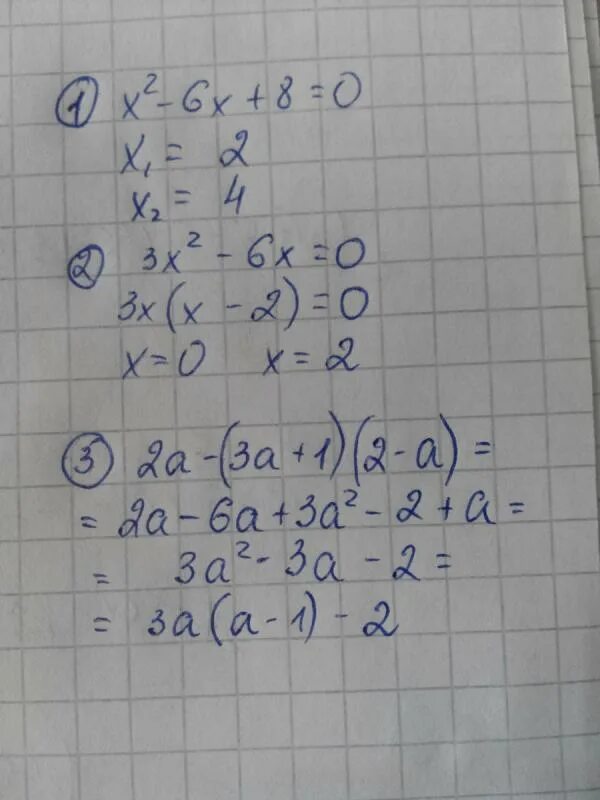 ① x² - 6x + 8 = 0
x₁ = 2
x₂ = 4
② 3x² - 6x = 0
3x(x - 2) = 0
x = 0 x = 2
③ 2a - (3a + 1)(2 - a) =
= 2a - 6a + 3a² - 2 + a =
= 3a² - 3a - 2 =
= 3a(a - 1) - 2